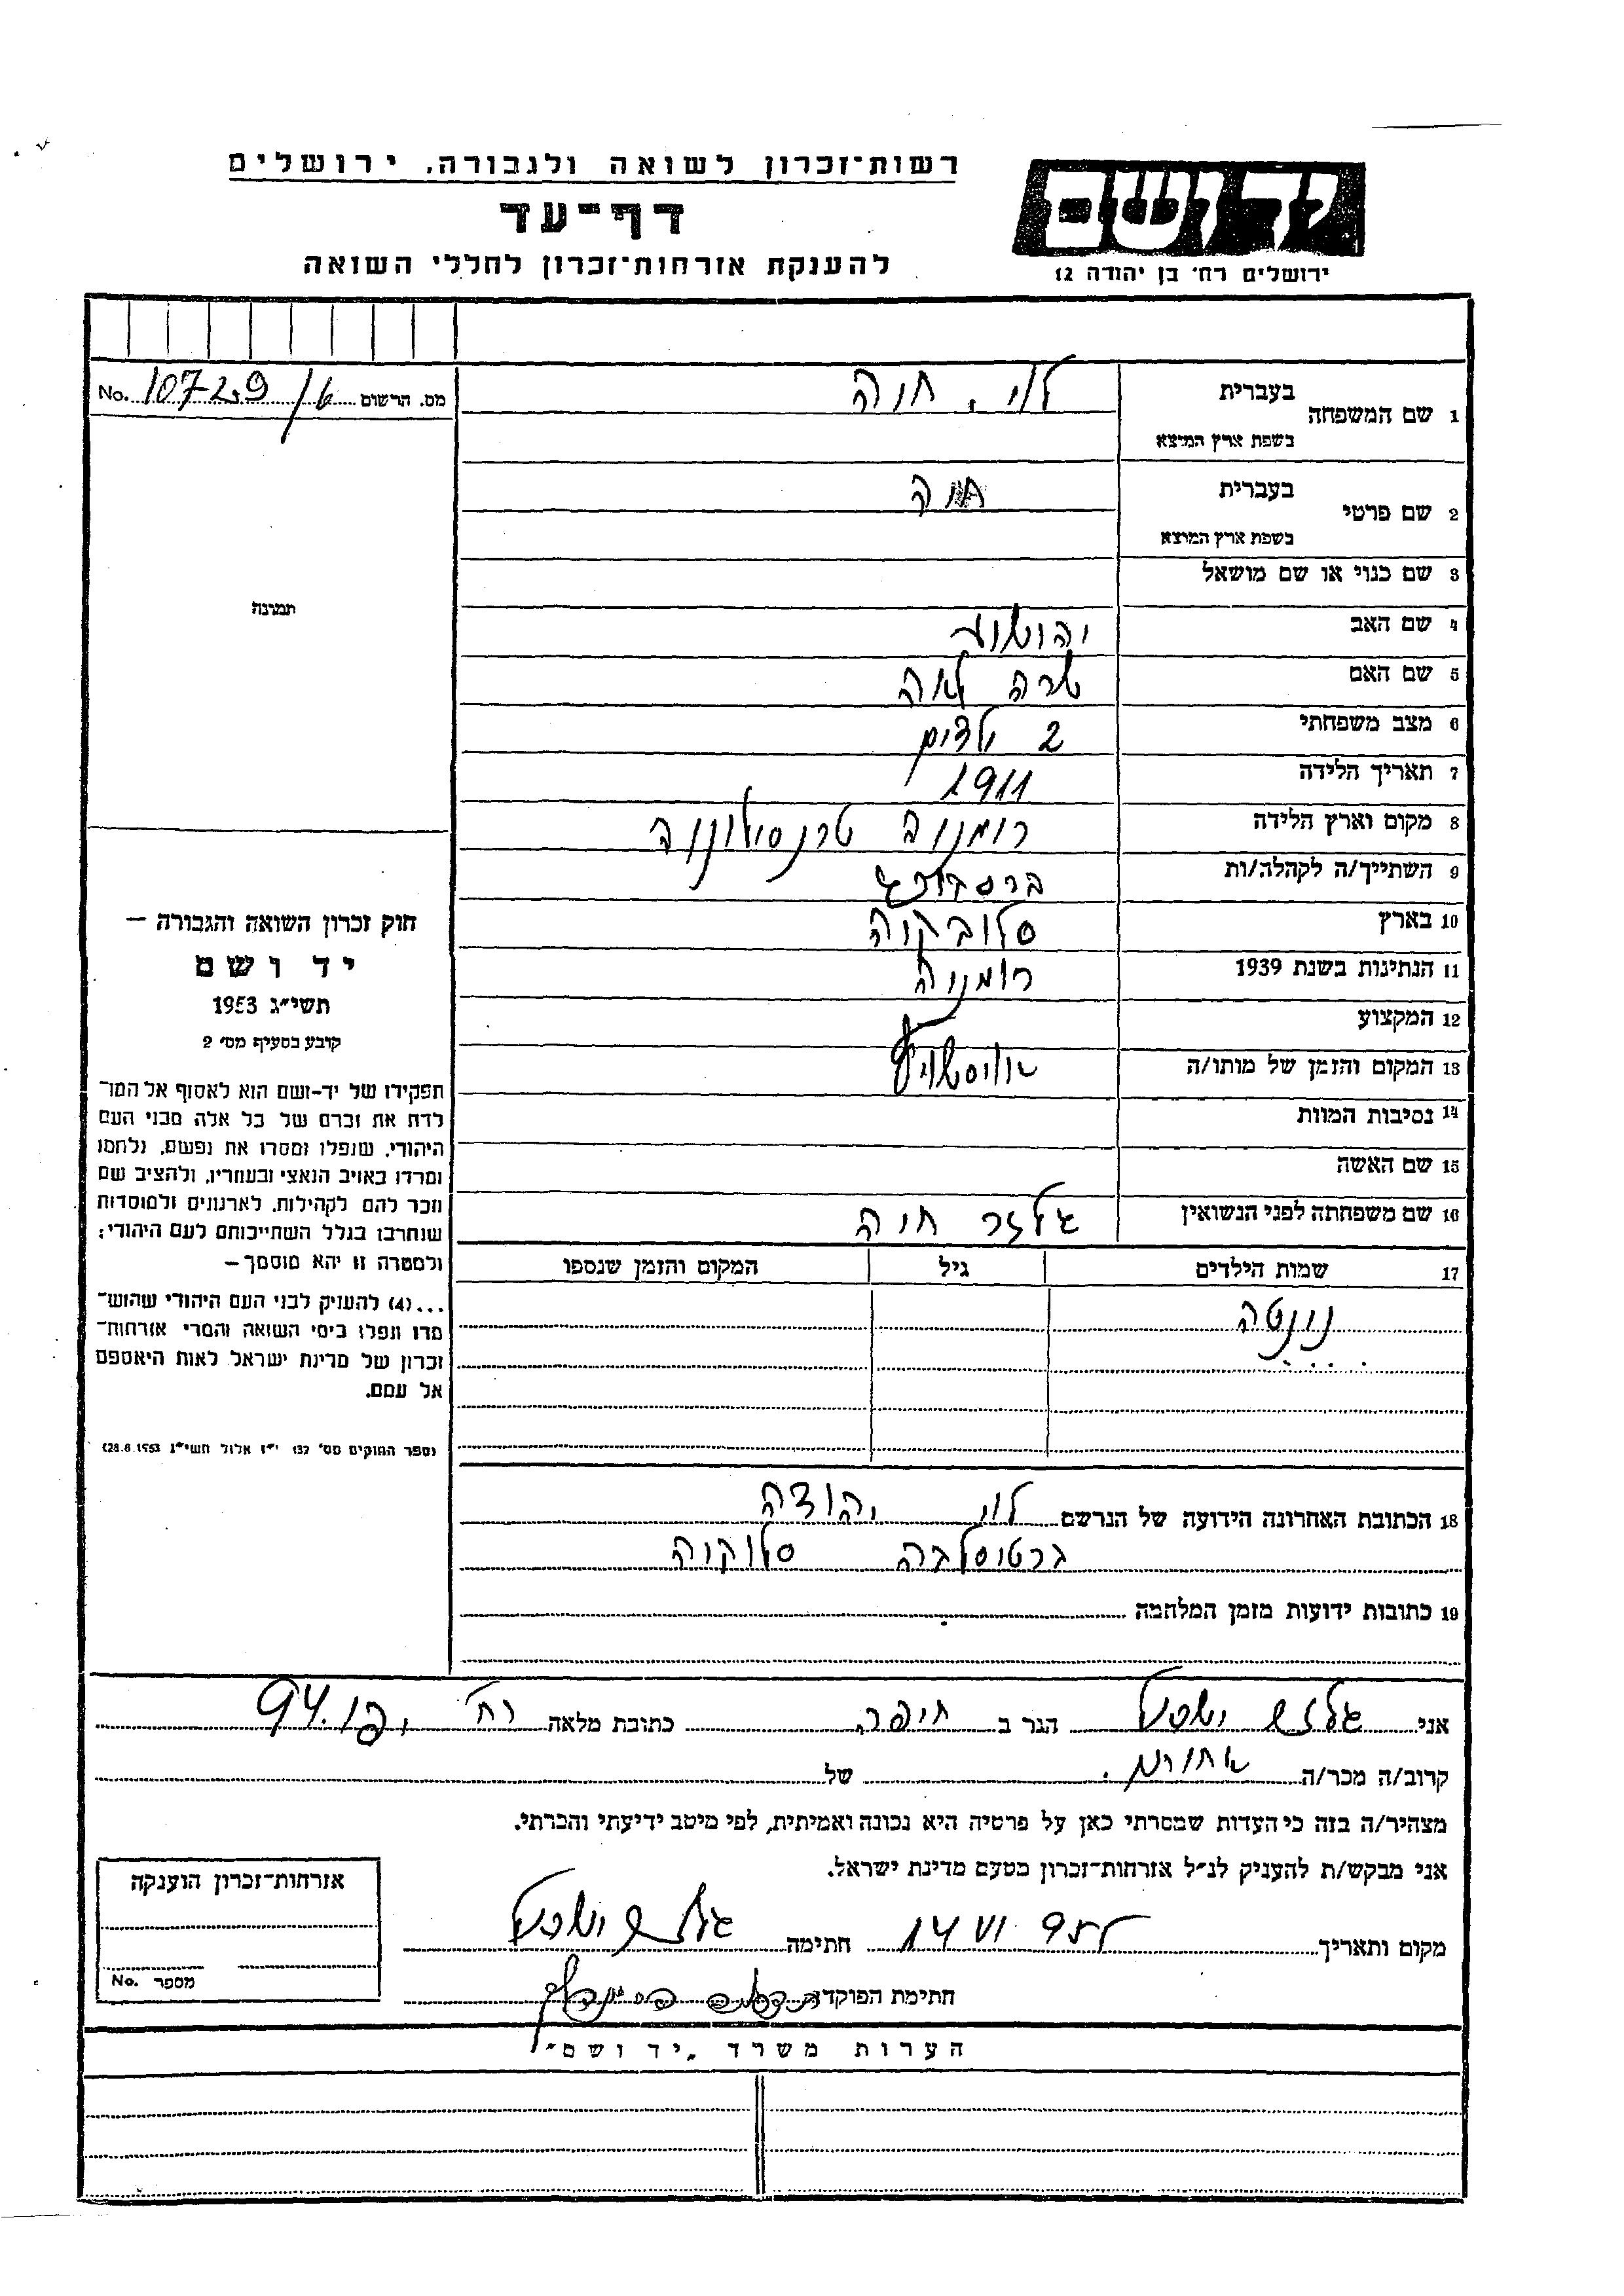 רשות־זכרון לשואה ולגבורה, ירושלים
דף־עד
להענקת אזרחות־זכרון לחללי השואה
יד ושם
ירושלים רח׳ בן יהודה 12
מס. הרשום 10729/6 No.
בעברית
1 שם המשפחה לוי. חנה
בשפת ארץ המוצא
בעברית
2 שם פרטי חנה
בשפת ארץ המוצא
3 שם כנוי או שם מושאל
4 שם האב יהושוע
5 שם האם שרה לאה
6 מצב משפחתי 2 ילדים
7 תאריך הלידה 1911
8 מקום וארץ הלידה רומניה טרנסילוניה
9 השתייך/ה לקהלה/ות
10 בארץ סלובקיה
11 הנתינות בשנת 1939 רומניה
12 המקצוע
13 המקום והזמן של מותו/ה
14 נסיבות המוות
15 שם האשה
16 שם משפחתה לפני הנשואין חנה
17 שמות הילדים גיל המקום והזמן שנספו
תמונה
חוק זכרון השואה והגבורה —
יד ושם
תשי״ג 1953
קובע בסעיף מס׳ 2
תפקידו של יד־ושם הוא לאסוף אל המו־
לדת את זכרם של כל אלה מבני העם
היהודי, שנפלו ומסרו את נפשם, נלחמו
ומרדו באויב הנאצי ובעוזריו, ולהציב שם
וזכר להם לקהילות, לארגונים ולמוסדות
שנחרבו בגלל השתייכותם לעם היהודי;
ולמטרה זו יהא מוסמך —
...(4) להעניק לבני העם היהודי שהוש־
מדו ונפלו בימי השואה והמרי אזרחות־
זכרון של מדינת ישראל לאות היאספם
אל עמם.
(ספר החוקים מס׳ 132 י״ז אלול תשי״ג 28.8.1953)
18 הכתובת האחרונה הידועה של הנרשם לוי יהודה
ברטיסלבה סלוקיה
19 כתובות ידועות מזמן המלחמה
אני הגר ב חיפה כתובת מלאה רח׳ יפו 94
קרוב/ה מכר/ה של
מצהיר/ה בזה כי העדות שמסרתי כאן על פרטיה היא נכונה ואמיתית, לפי מיטב ידיעתי והכרתי.
אני מבקש/ת להעניק לנ״ל אזרחות־זכרון מטעם מדינת ישראל.
מקום ותאריך 14 VI חתימה
חתימת הפוקד
אזרחות־זכרון הוענקה
מספר No.
הערות משרד „יד ושם״